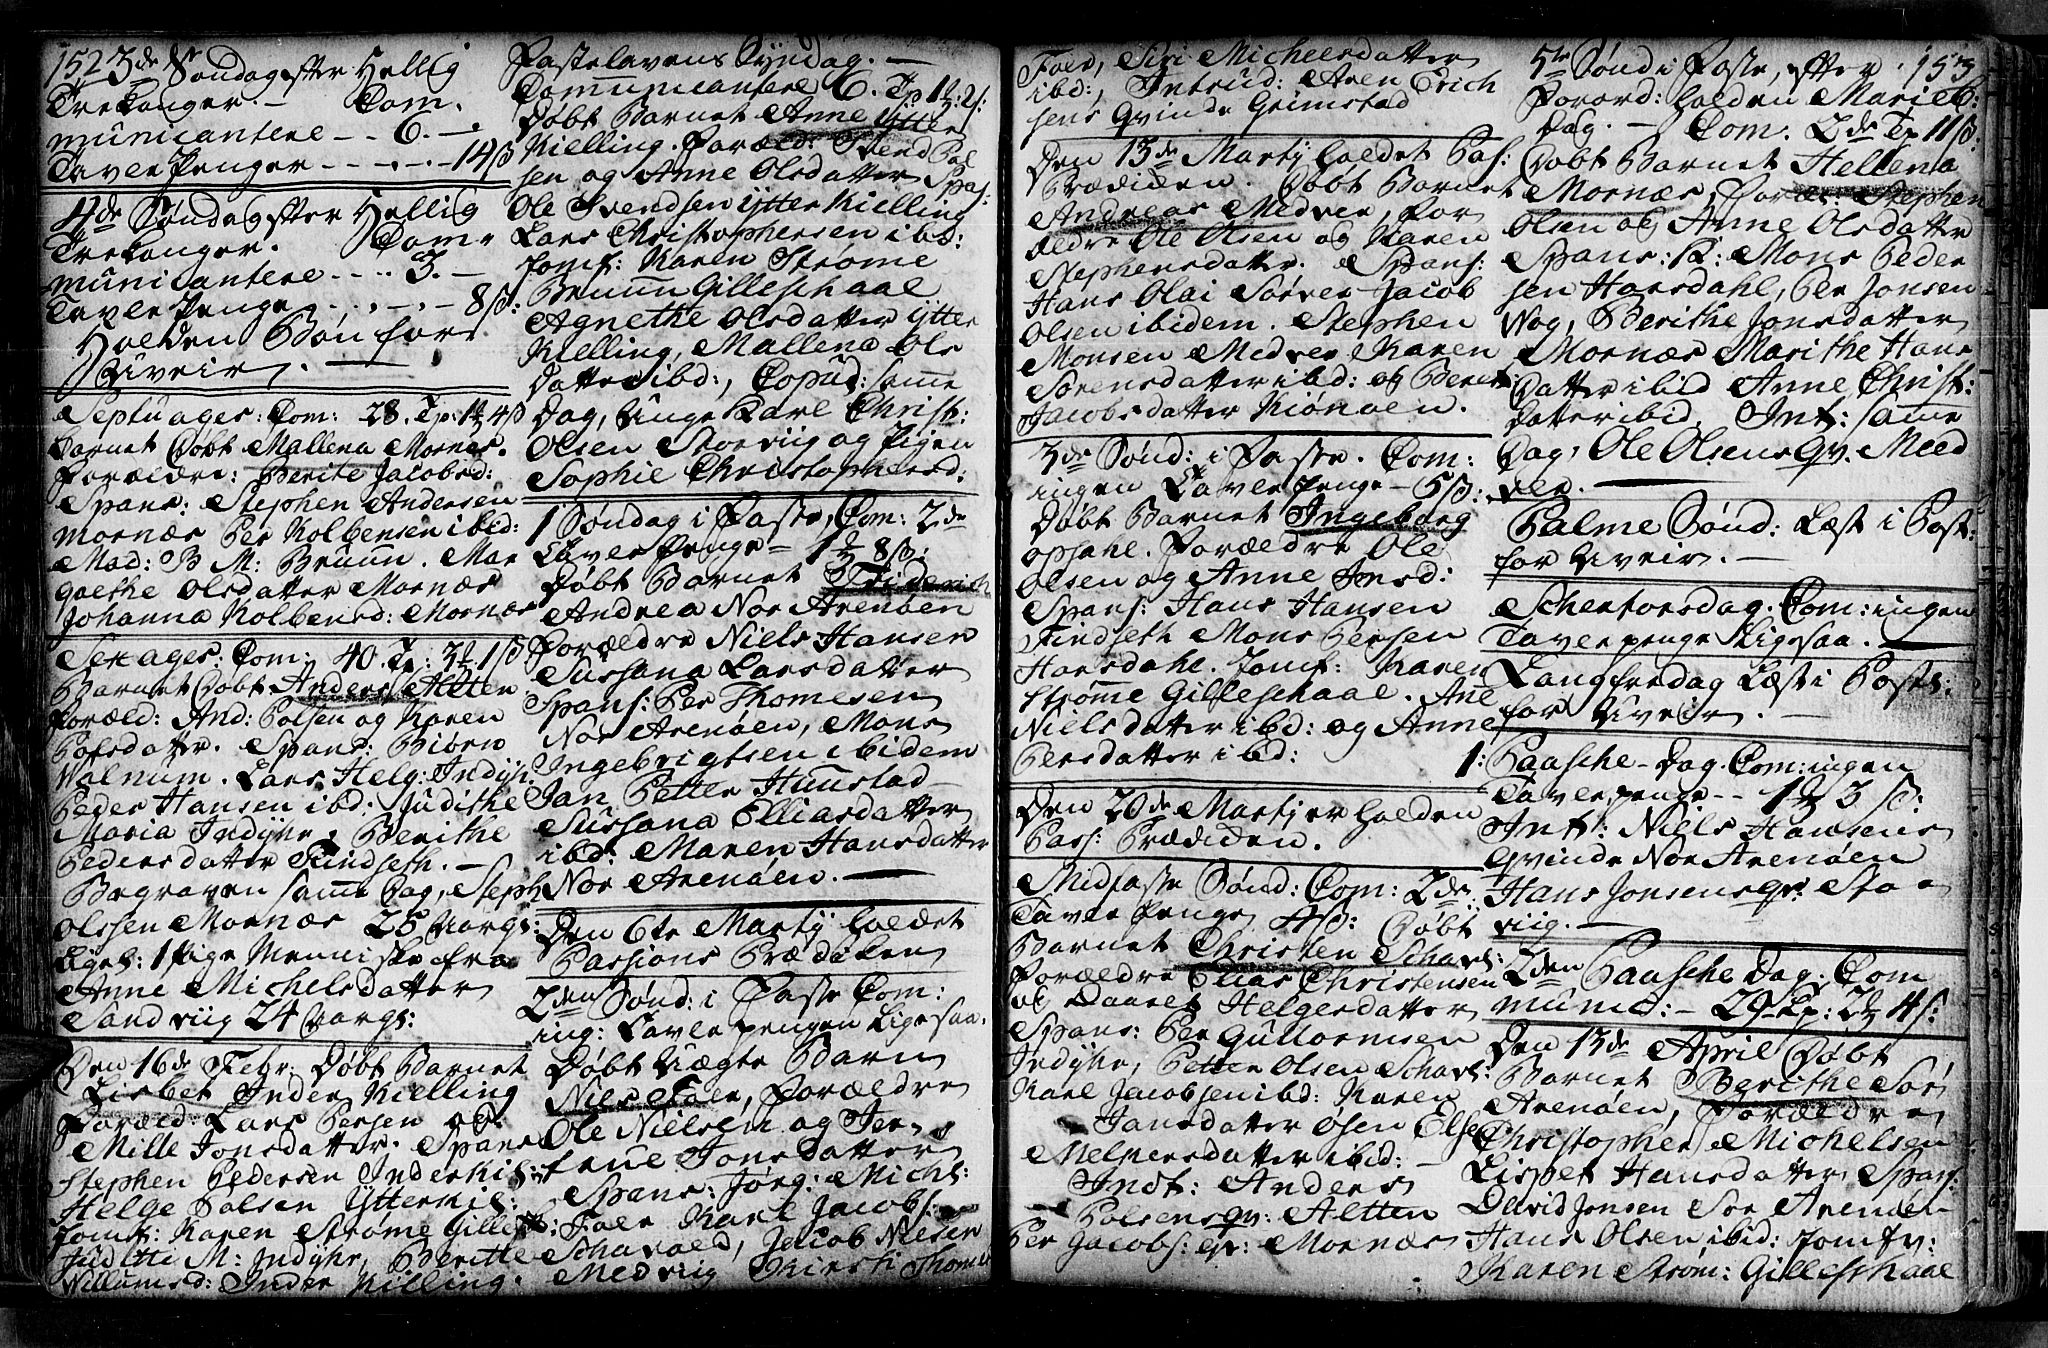 152
3de Søndag efter Hellig
Trekonger. — Com.
municantere - - 6. -
Tavle Penger - - - - - 14 ß
4de Søndag efter Hellig
Trekonger. Com=
municantere - - - - 3. -
Tavle Penge - - - - 8 ß:
Holden Bøn for
Uveir. —
Septuages: Com: 28. Tp: 4 ß
Barnet Døbt Mallena Mornæs.
Forældre: Berite Jacobsd:
Spans: Stephen Andersen
Mornæs Per Kolbensen ibid:
Mad: B M: Bruun. Mar
grethe Olsdatter Mornæs
Johanna Kolbensd: Mornæs
Sexages: Com: 40. Tp: 1 ß
Barnet Døbt Anders Alten
Foræld: And: Polsen og Karen
Polsdatter. Spans: Biørn
Valnum. Lars Helg: Indyhr
Peder Hansen ibd: Judithe
Maria Indyhr, Berithe
Pedersdatter Findseth. —
Begraven samme Dag, Steph
Olssen Mornæs 25 Aars:
Ligel: 1 Pige Menniske fra
Anne Michelsdatter
Sandviig 24 Aars:
Den 16de Febr: Døbt Barnet
Lisbet Inder Kielling
Foræld: Lars Persen og
Mille Jonsdatter. Spans
Stephen Pedersen Inderkiel:
Helge Polsen Ytterkiel:
Jomf: Karen Strøme Gillesch:
Judithe M: Indyhr, Berithe
Willumsd: Inder Killing.
Fastelavens Syndag. —
Communicantere 6. Tp 2 ß:
Døbt Barnet Anne Ytter
Kielling. Foræld: Svend Pol
sen og Anne Olsdatter Spas:
Ole Svendsen Ytter Kielling
Lars Christophersen ibd:
Jomf: Karen Strøme
Bruun Gilleschaal
Agnethe Olsdatter Ytter
Kielling, Mallena Ols
datter ibd:, Copul: samme
Dag, Unge Karl Christ:
Olsen Storviig og Pigen
Sophie Christophersd:
1 Søndag i Faste, Com: 2de
Tavle Penge - 8 ß:
Døbt Barnet Friderich
Andrea Nor Arenøen
Forældre Niels Hansen
Sussana Larsdatter
Spans: Per Thomesen
Nor Arenøen, Mons
Ingebrigtsen ibidem
Jan Petter Hunstad
Sussana Elliasdatter
ibd: Maren Hansdatter
Nor Arenøen. —
Den 6te Martij holdet
Passions Prædiken
2den Sønd: i Faste Com:
ing: Tavle pengen Ligesaa.
Døbt Uægte Barn
Niels Foer, Forældre
Ole Nielsen og
Jonsdatter
Spans: Jørg: Michl:
Foer Karl Jacobs:
Schavold, Jacob Nielsen
Medviig Kirsti Thomes
Foer, Siri Micheelsdatter
ibd:, Introd: Aren Erich
sens Qvinde Grimstad
Den 13de Martij holdet Pas:
Prædiken. Døbt Barnet
Andreas Medver, For
ældre Ole Olsen og Karen
Stephensdatter. Spans:
Hans Olai Sørver Jacob
Olsen ibidem. Stephen
Monsen Medver Karen
Sørensdatter ibd: og Beret:
Jacobsdatter Kiønøen.
3de Sønd: i Faste. Com:
ingen Tavle Penge - 5 ß:
Døbt Barnet Ingeborg
Opsahl. Forældre Ole
Olsen og Anne Jonsd:
Spans: Hans Hansen
Findseth Mons Persen
Harsdahl. Jomf: Karen
Strømme Gilleschaal. Ane
Nielsdatter ibd: og Anne
Persdatter ibd:
Den 20de Martij holden
Pass: Prædiken.
Midfaste Sønd: Com: 2de
Tavle Penge 4 ß: Døbt
Barnet Christen Schavl:
Forældre Elias Christensen
og Maaret Helgesdatter
Spans: Per Gullormsen
Indyhr, Petter Olsen Schavl:
Karl Jacobsen ibd: Karen
Jansdatter Øsen Else
Melpersdatter ibid: —
Indt: Anders
Polsens qv: Altten
Per Jacobs: qv: Mornæs
153
5te Sønd i Faste, efter
Forord: holden Marieb:
Dag. — Com. 2de Tp 11 ß:
Døbt Barnet Hellena
Mornæs, Foræl: Stephen
Olsen og Anne Olsdatter
Spans: R: Mons Peder
sen Harsdahl, Per Jonsen
Nog, Berithe Jonsdatter
Mornæs Marithe Hans
datter ibid Anne Christ:
datter ibid. Int: samme
Dag, Ole Olsens qv. Med
ver. —
Palme Sønd: Læst i Post:
for Uveir. —
Schertorsdag. Com: ingen
Tavle penge Ligesaa. —
Langfredag Læst i Post:
for Uveir. —
1: Paasche-Dag. Com: ingen
Tavle penge - - 3 ß:
Int: Niels Hansens
Qvinde Nor Arenøen
Hans Jonsens qv: Sta=
viig. —
2den Paasche Dag: Com
munic: - 29 Tp: 4 ß:
Den 13de April Døbt
Barnet Berithe Sør
Arenøen, Forældre
Christopher Michelsen
Lispet Hansdatter Spans:
David Jonsen Sør Arenøen
Hans Olsen ibid: Jomfr:
Karen Strøm: Gilleschaal